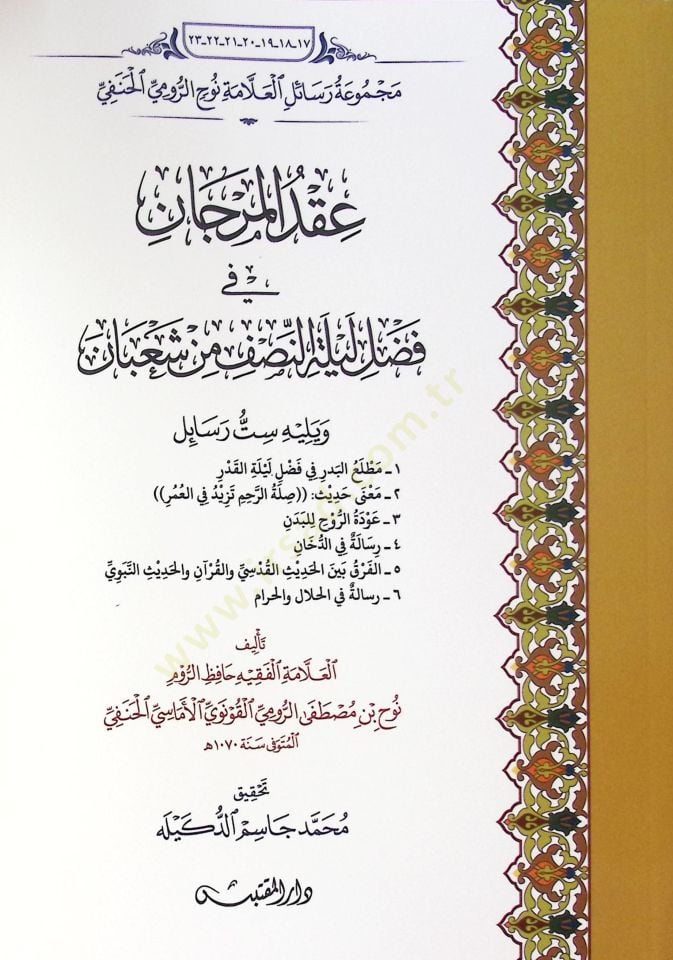 ١٧_١٨_١٩_٢٠_٢١_٢٢_٢٣
مَجْمُوعَةُ رَسَائِلِ ٱلْعَلَّامَةِ نُوحِ ٱلرُّومِيِّ ٱلْحَنَفِيِّ
عِقْدُ المَرْجَانِ
فِي
فَضْلِ لَيْلَةِ النِّصْفِ مِنْ شَعْبَانَ
وَيَلِيْهِ سِتُّ رَسَائِل
١- مَطْلَعُ البَدرِ فِي فَضْلِ لَيْلَةِ القَدْرِ
٢- مَعْنَى حَدِيْث: ((صِلَةُ الرَّحِمِ تَزِيْدُ فِي العُمُرِ))
٣- عَوْدَةُ الرُّوْحِ لِلبَدَنِ
٤- رِسَالَةٌ فِي الدُّخَانِ
٥- الفَرْقُ بَيْنَ الحَدِيْثِ القُدْسِيِّ والقُرْآنِ والحَدِيْثِ النَّبَوِيِّ
٦- رسالةٌ في الحلال والحرام
تَألِيف
ٱلْعَلَّامَةِ ٱلْفَقِيْهِ حَافِظِ ٱلرُّوْمِ
نُوحِ بْنِ مُصْطَفَى ٱلرُّومِيِّ ٱلْقُوْنَوِيِّ ٱلْأَمَاسِيِّ ٱلْحَنَفِيِّ
ٱلْمُتَوَفَّى سَنَة ١٠٧٠ هـ
تَحْقِيق
مُحَمَّد جَاسِم ٱلدُّكَيْلَه
دار المقتبس